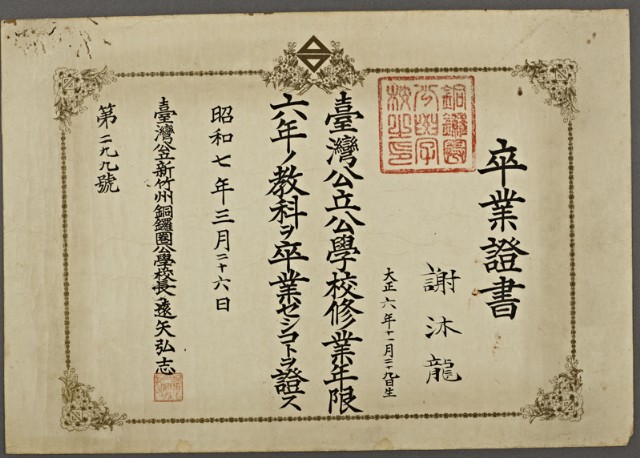 卒業證書
謝沐龍
大正六年十一月二十九日生
臺灣公立公學校修業年限
六年ノ教科ヲ卒業セシコトヲ證ス
昭和七年三月二十六日
臺灣公立新竹州銅鑼圈公學校長遠矢弘志
第二九九號
銅鑼圈
公學
校之印